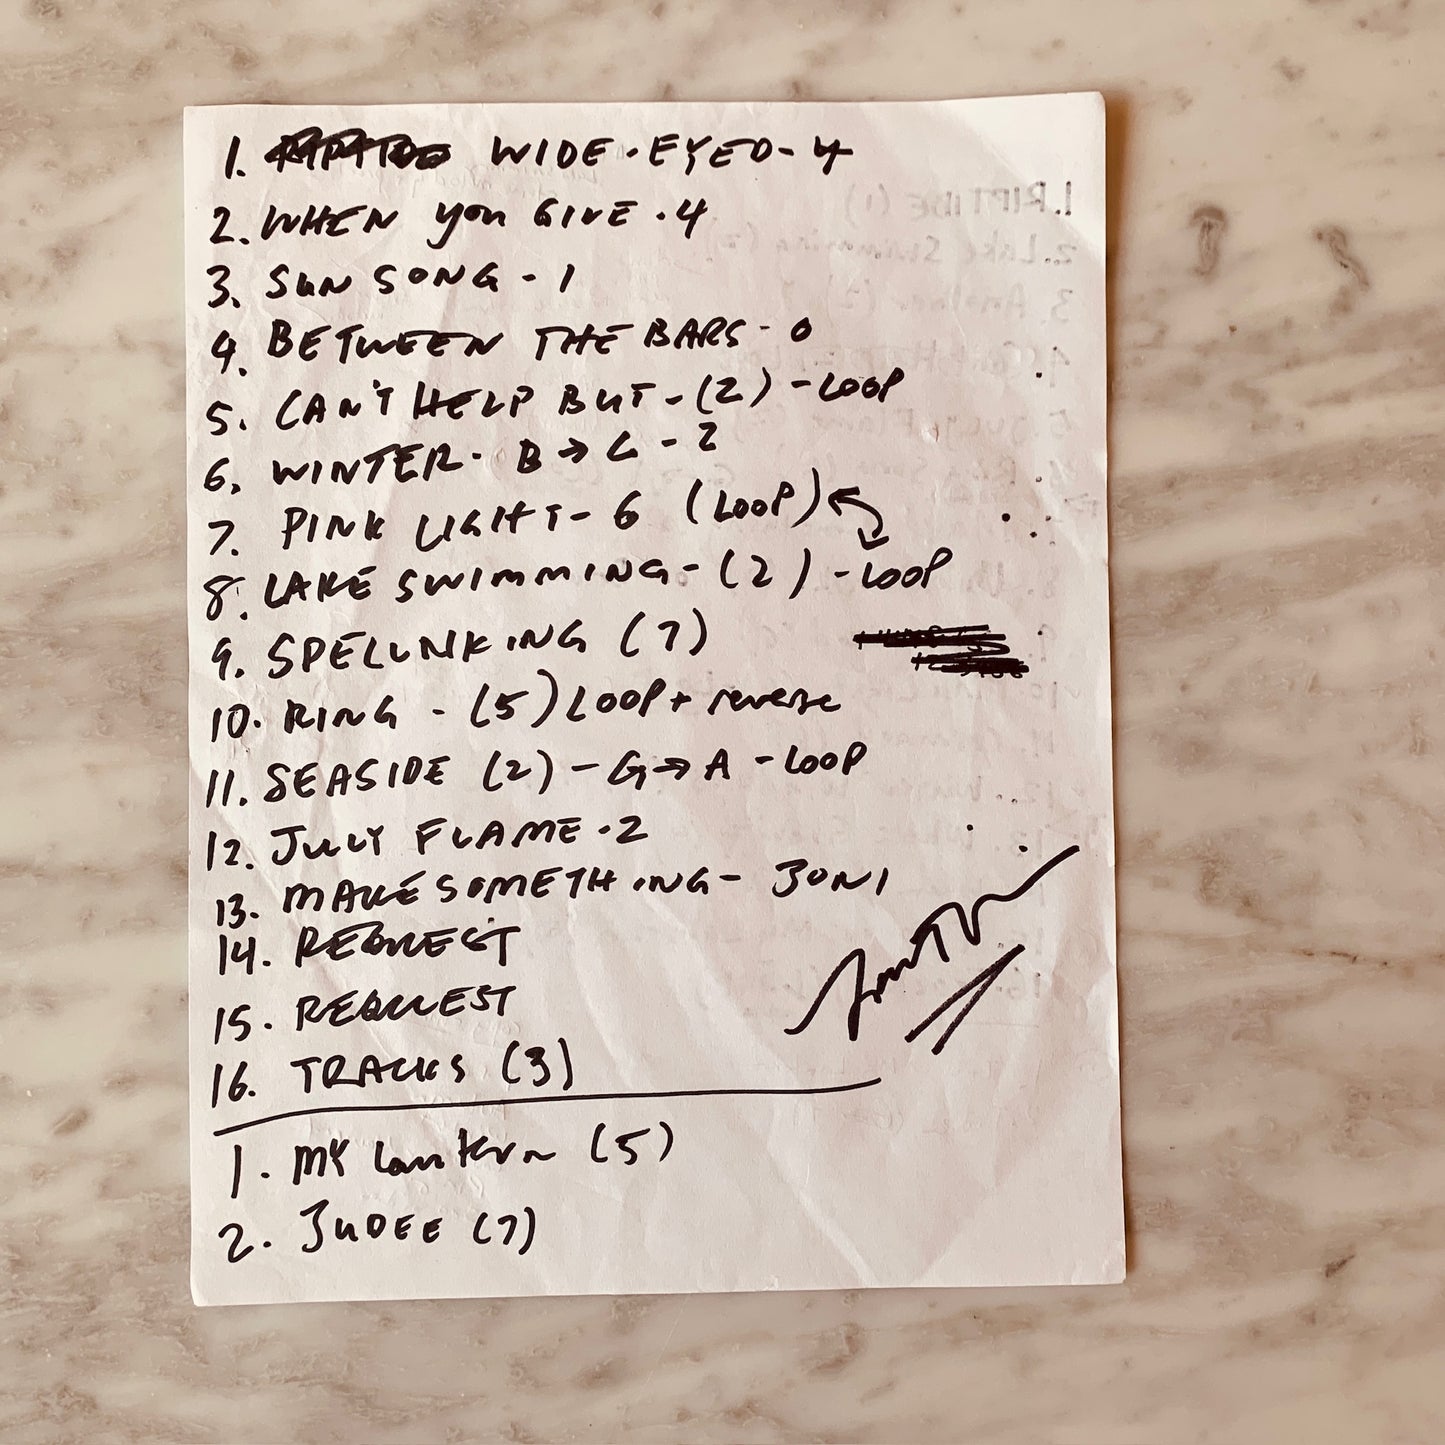 1. RIPTIDE WIDE-EYED - 4
2. WHEN you GIVE - 4
3. SUN SONG - 1
4. BETWEEN THE BARS - 0
5. CAN'T HELP BUT - (2) - LOOP
6. WINTER - B → C - 2
7. PINK LIGHT - 6 (LOOP)
8. LAKE SWIMMING - (2) - LOOP
9. SPELUNKING (7)
10. RING - (5) LOOP + reverse
11. SEASIDE (2) - G → A - LOOP
12. JULY FLAME - 2
13. MAKE SOMETHING - JONI
14. REQUEST
15. REQUEST
16. TRACKS (3)
1. MY Lantern (5)
2. JUDEE (7)
1. RIPTIDE (1)
2. Lake Swimming